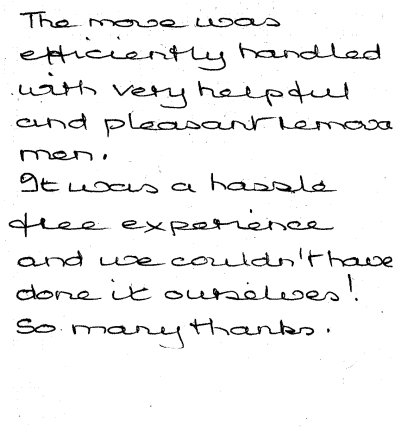 The move was
efficiently handled
with very helpful
and pleasant remova
men.
It was a hassle
free experience
and we couldn't have
done it ourselves!
So many thanks.